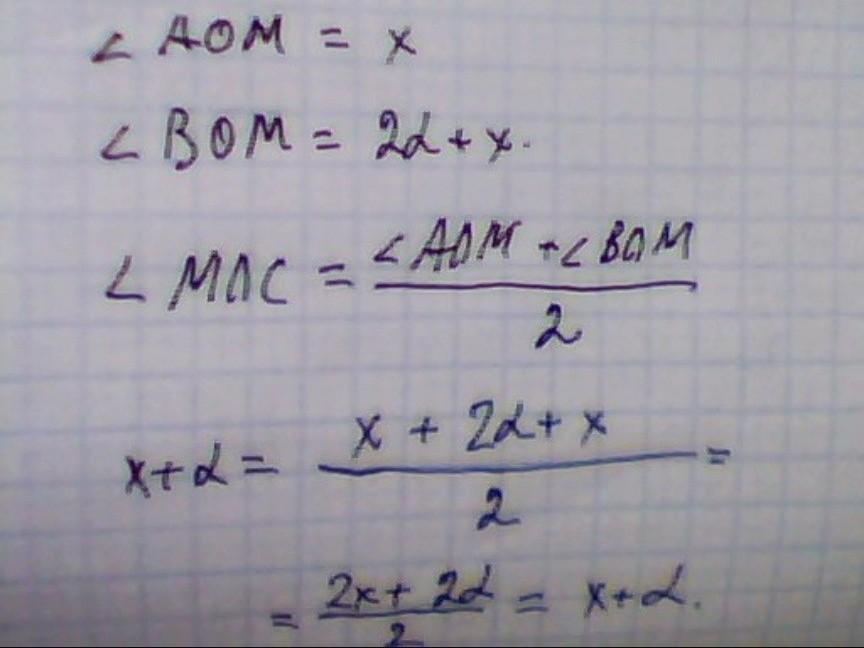 ∠ AOM = x
∠ BOM = 2α + x.
∠ MOC = (∠ AOM + ∠ BOM) / 2
x + α = (x + 2α + x) / 2 =
= (2x + 2α) / 2 = x + α.